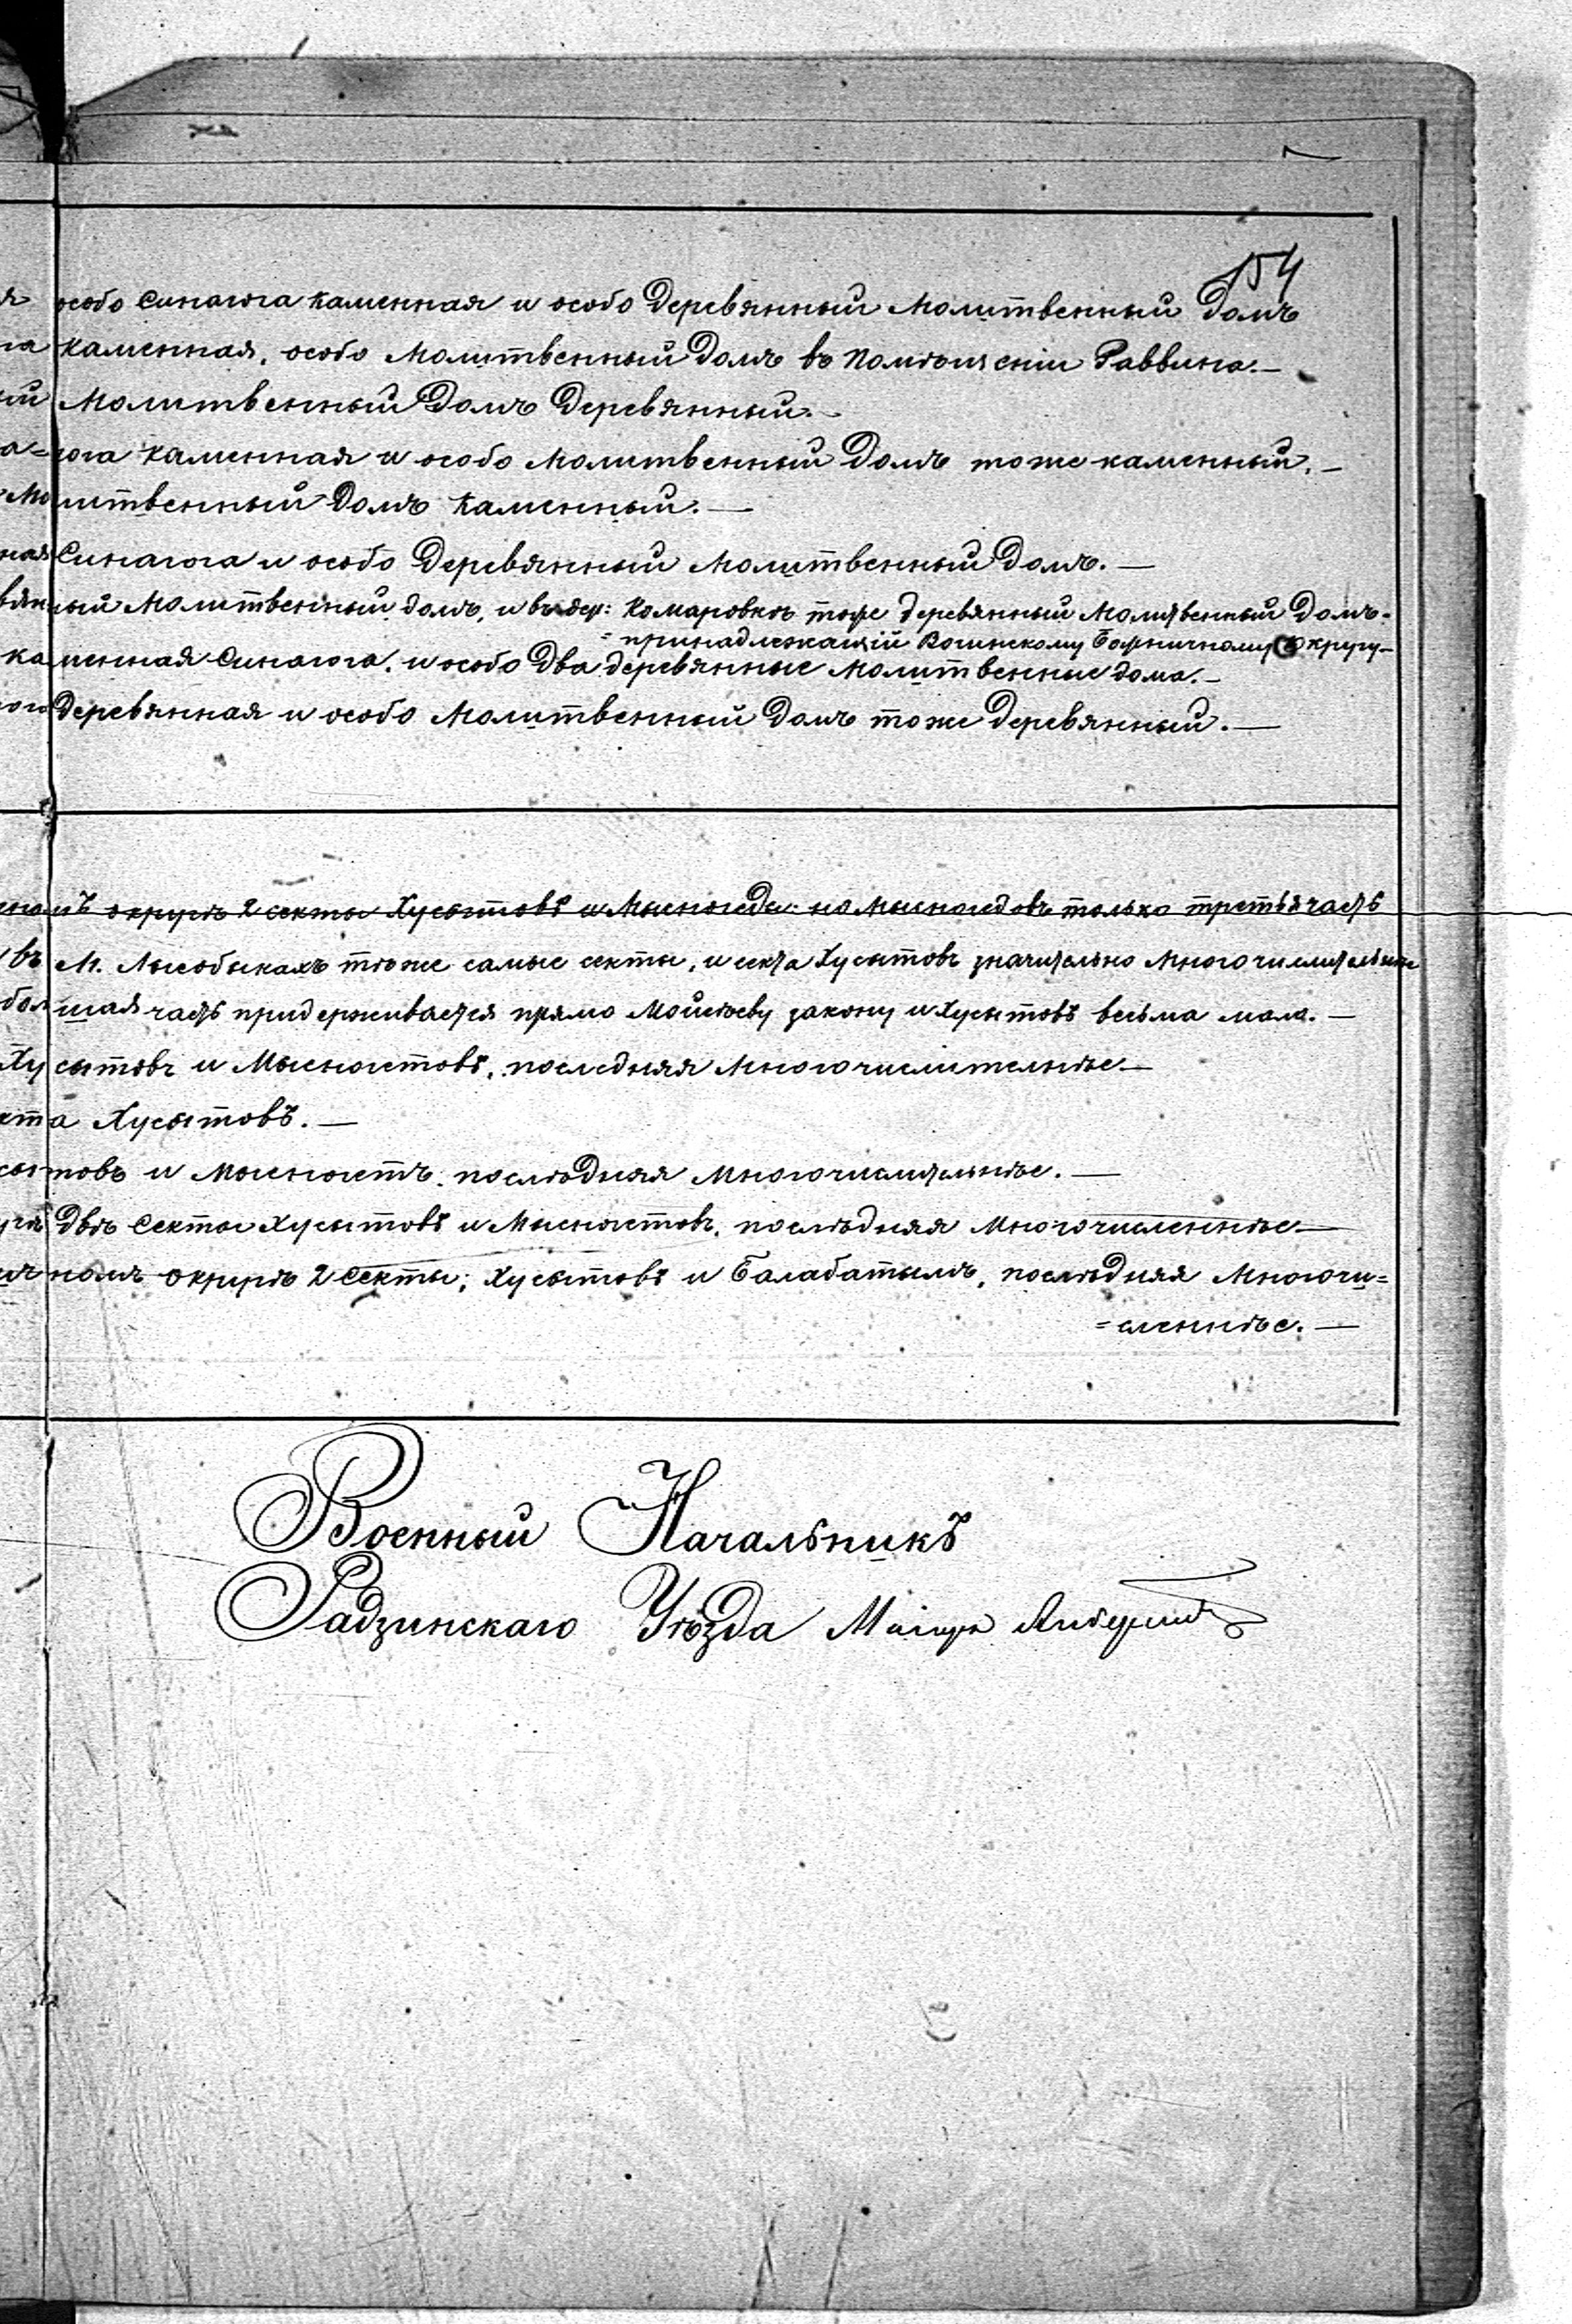 154
я особо Синагога каменная и особо Деревянный Молитвенный Домъ
га каменная, особо Молитвенный Домъ въ помѣщеніи Раввина.—
ый Молитвенный Домъ Деревянный.—
а=гога каменная и особо Молитвенный Домъ тоже каменный.—
Молитвенный Домъ каменный.—
ная Синагога и особо Деревянный Молитвенный Домъ.—
вянный Молитвенный домъ, и въ дер: Комаровкѣ тоже деревянный Молитвенный Домъ=
=принадлежащій Вогинскому Божничному Округу—
каменная Синагога, и особо Два деревянные Молитвенные дома.—
Деревянная и особо Молитвенный Домъ тоже Деревянный.—
номъ округѣ 2 секты Хусытовъ и Мысногеды: но Мысногедовъ только третья часть
въ М. Лысобыкахъ тѣже самые секты, и секта Хусытовъ значительно Многочислительнѣе
большая часть придерживается прямо Мойсѣеву закону и Хусытовъ весьма мало.—
Хусытовъ и Мысногетовъ, последняя Многочислительнѣе—
кта Хусытовъ.—
сытовъ и Мысногетъ. послѣдняя Многочислительнѣе.—
Двѣ Секты Хусытовъ и Мысногетовъ, послѣдняя Многочисленнѣе—
ичномъ округѣ 2 Секты; Хусытовъ и Балабатымъ, послѣдняя Многочи=
=сленнѣе.—
Военный Начальникъ
Радзинскаго Уѣзда Маіоръ